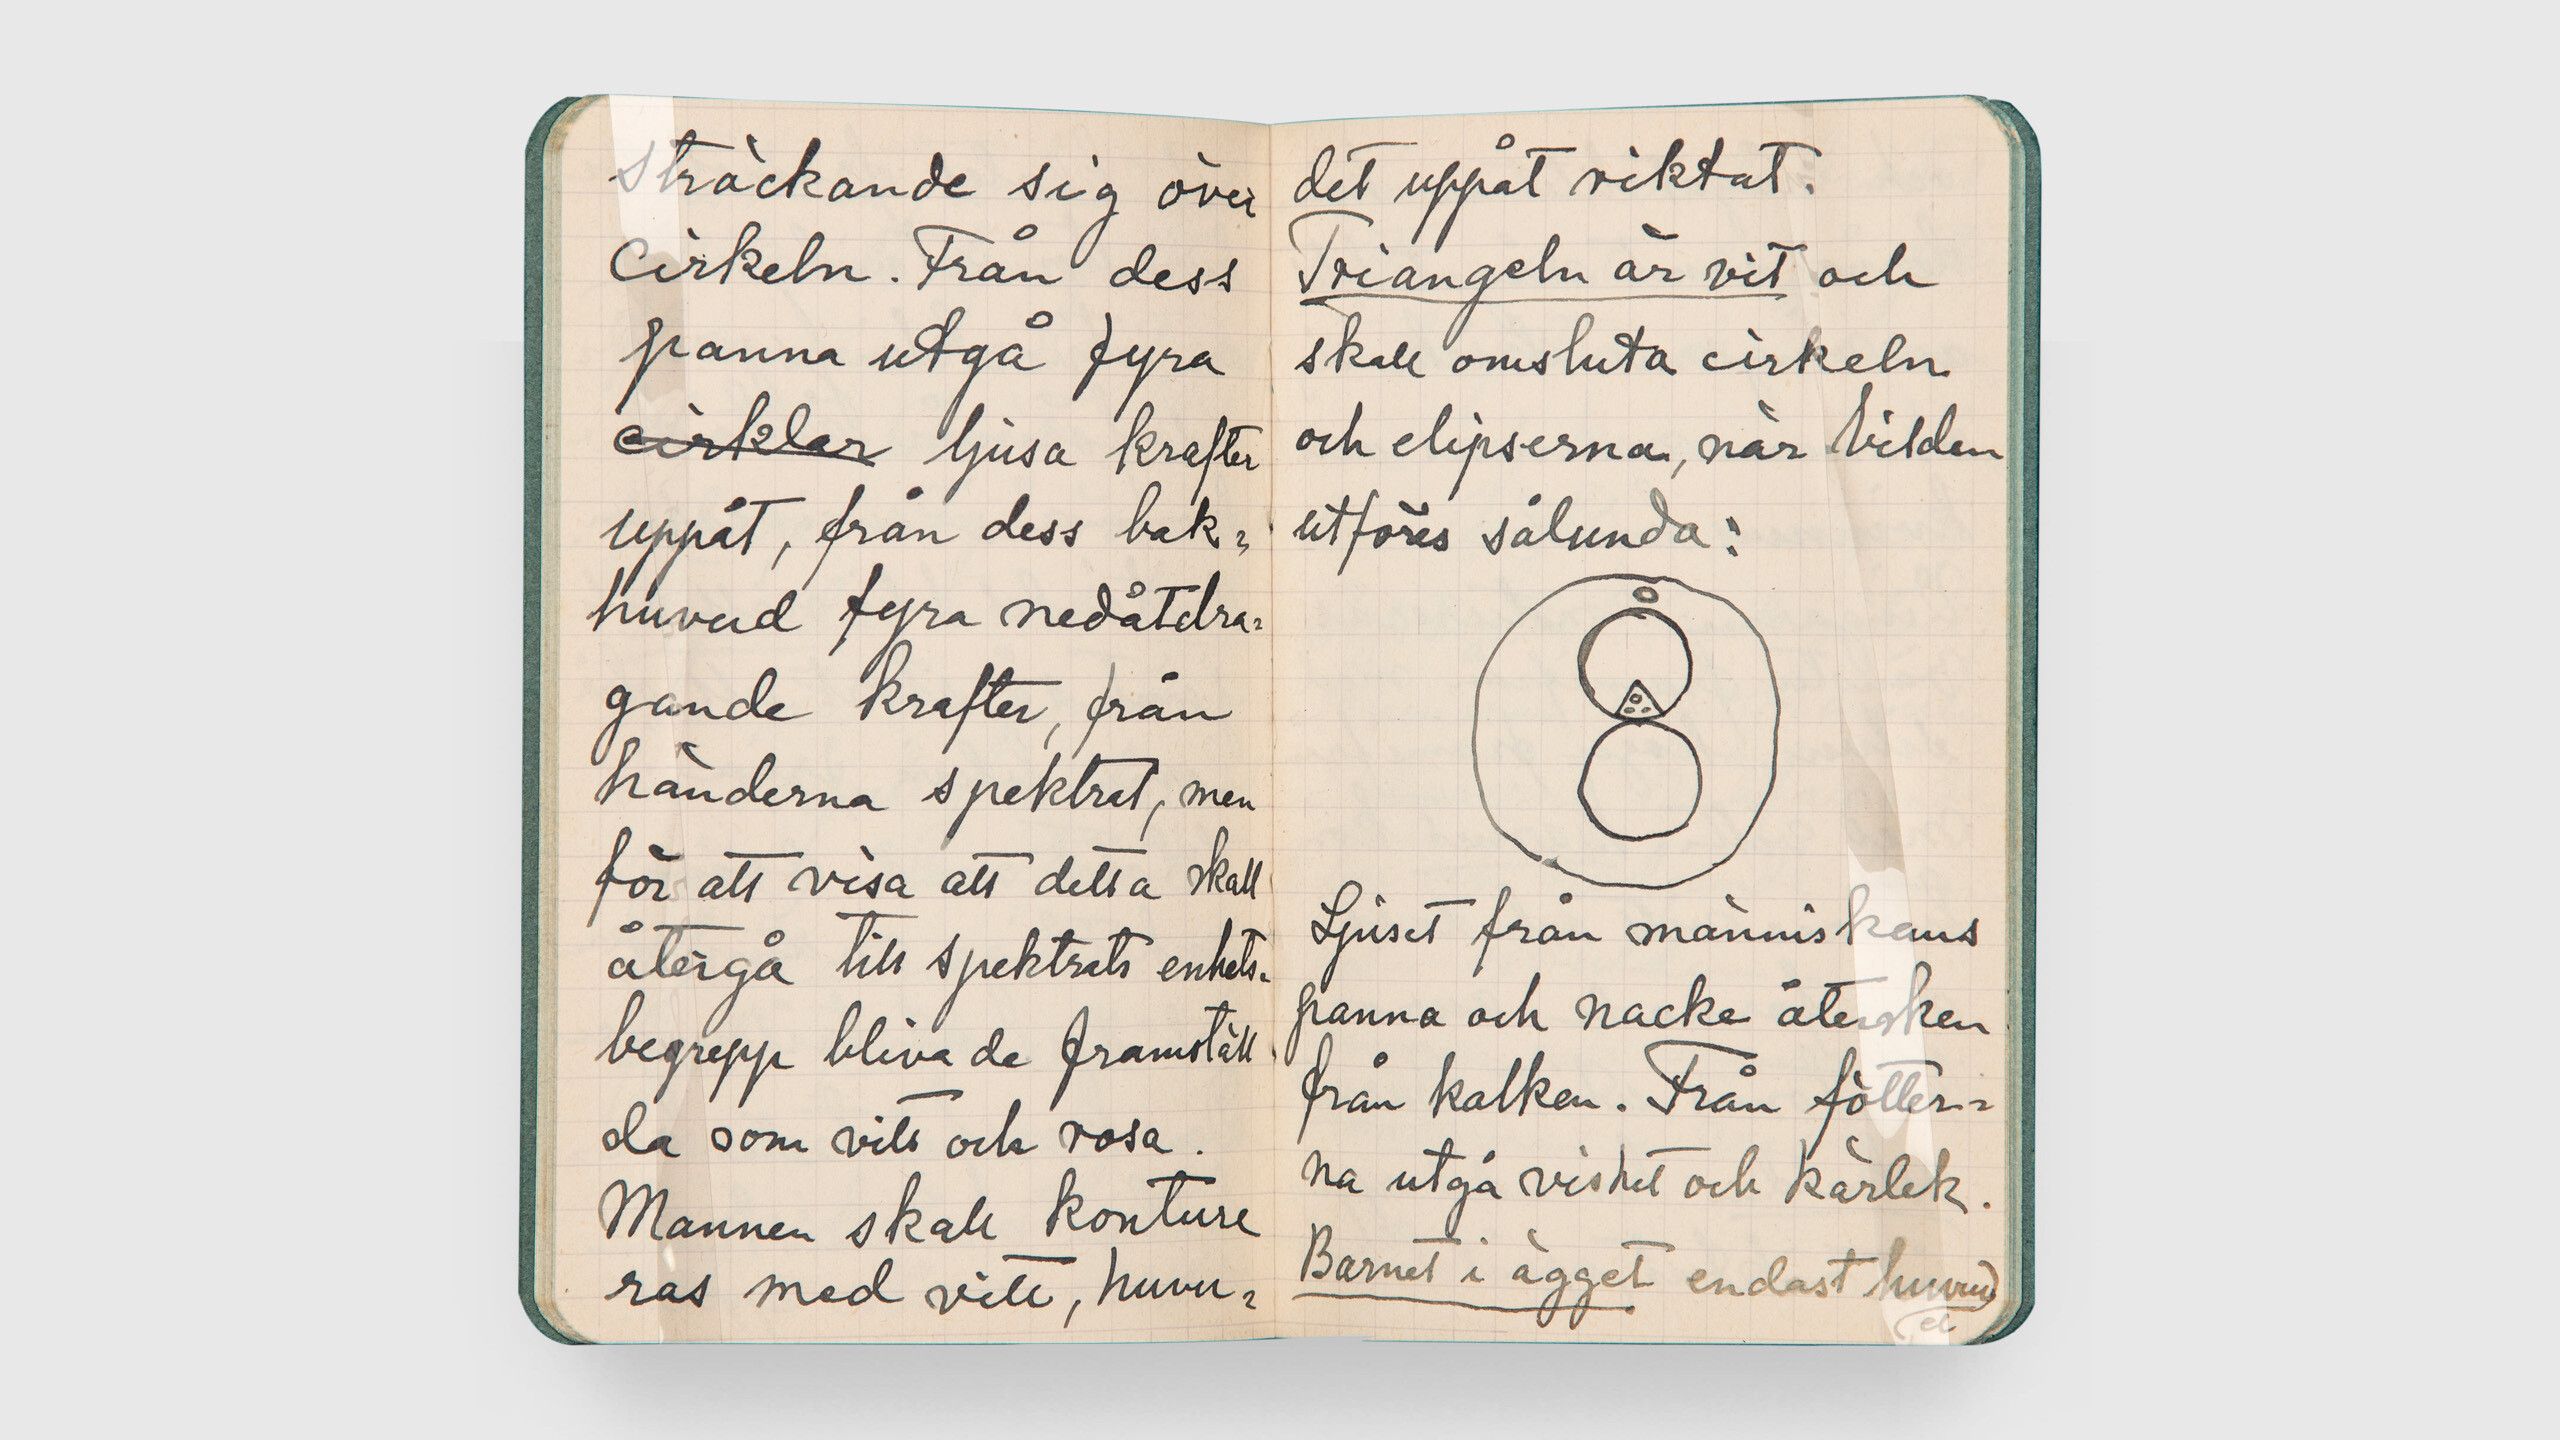 sträckande sig över
Cirkeln. Från dess
panna utgå fyra
cirklar ljusa krafter
uppåt, från dess bak-
huvud fyra nedåtdra-
gande krafter, från
händerna spektrat, men
för att visa att detta skall
återgå till spektrats enhets-
begrepp bliva de framställ
da som vitt och rosa.
Mannen skall konture
ras med vitt, huvu-
det uppåt riktat.
Triangeln är vit och
skall omsluta cirkeln
och elipserna, när bilden
utföres sålunda:
Ljuset från människans
panna och nacke återsken
från kalken. Från fötter-
na utgå vishet och kärlek.
Barnet i ägget endast huvud
et